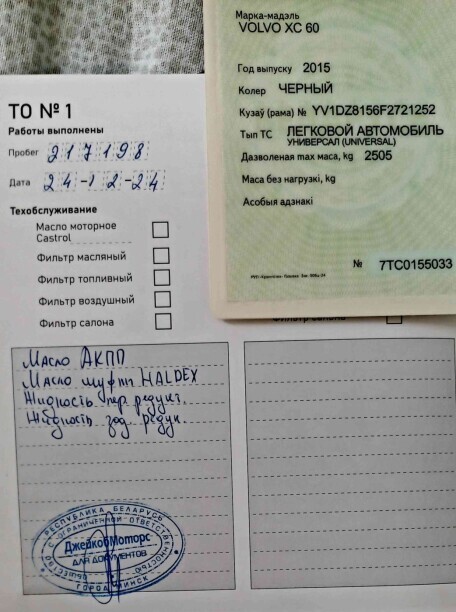 Марка-мадэль
VOLVO XC 60
Год выпуску 2015
Колер ЧЕРНЫЙ
Кузаў (рама) № YV1DZ8156F2721252
Тып ТС ЛЕГКОВОЙ АВТОМОБИЛЬ
УНИВЕРСАЛ (UNIVERSAL)
Дазволеная max маса, kg 2505
Маса без нагрузкі, kg
Асобыя адзнакі
№ 7TC0155033
ТО № 1
Работы выполнены
Пробег 217198
Дата 24-12-24
Техобслуживание
Масло моторное
Castrol
Фильтр масляный
Фильтр топливный
Фильтр воздушный
Фильтр салона
Масло АКПП
Масло муфт HALDEX
Жидкость пер редукт.
Жидкость зад. редук.
РЕСПУБЛИКА БЕЛАРУСЬ
ОБЩЕСТВО С ОГРАНИЧЕННОЙ ОТВЕТСТВЕННОСТЬЮ
ДжейкобМоторс
ДЛЯ ДОКУМЕНТОВ
ГОРОД МИНСК